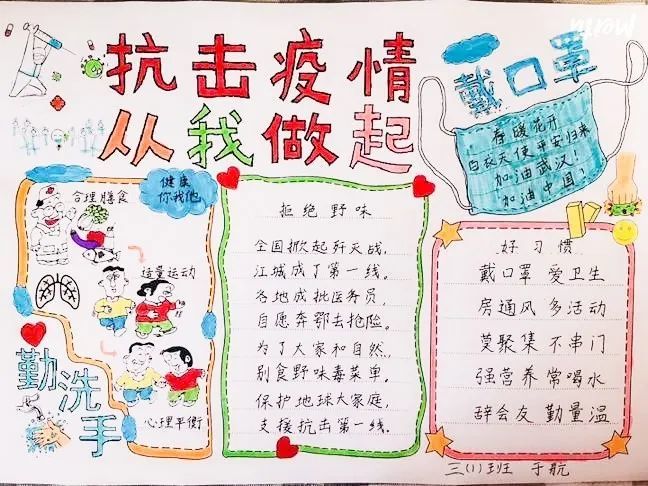 抗击疫情
从我做起
戴口罩
春暖花开
白衣天使平安归来
加油武汉!
加油中国!
健康
你我他
合理膳食
适量运动
心理平衡
勤洗手
拒绝野味
全国掀起歼灭战,
江城成了第一线。
各地成批医务员,
自愿奔鄂去抢险。
为了大家和自然,
别食野味毒菜单。
保护地球大家庭,
支援抗击第一线。
好习惯
戴口罩 爱卫生
房通风 多活动
莫聚集 不串门
强营养 常喝水
辞会友 勤量温
三(1)班 于航